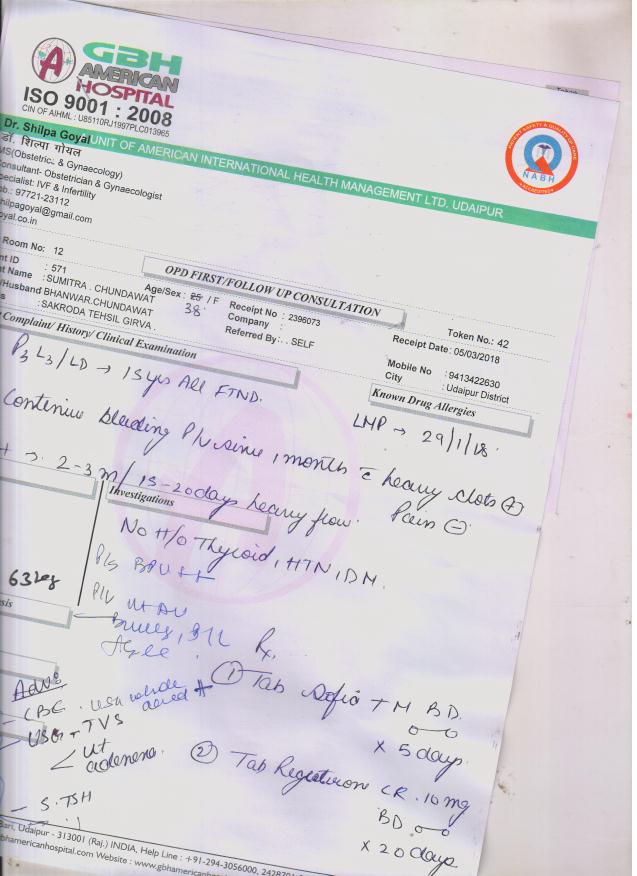 GBH
AMERICAN
HOSPITAL
ISO 9001 : 2008
CIN OF AIHML : U85110RJ1997PLC013965
Dr. Shilpa Goyal
UNIT OF AMERICAN INTERNATIONAL HEALTH MANAGEMENT LTD. UDAIPUR
डॉ. शिल्पा गोयल
MS(Obstetric. & Gynaecology)
Consultant- Obstetrician & Gynaecologist
Specialist: IVF & Infertility
Mob.: 97721-23112
shilpagoyal@gmail.com
oyal.co.in
NABH
Room No: 12
nt ID : 571
nt Name : SUMITRA . CHUNDAWAT
/Husband BHANWAR.CHUNDAWAT
s : SAKRODA TEHSIL GIRVA
OPD FIRST/FOLLOW UP CONSULTATION
Age/Sex : 25 / F
38
Receipt No : 2396073
Company :
Referred By: . SELF
Token No.: 42
Receipt Date: 05/03/2018
Mobile No : 9413422630
City : Udaipur District
Complaint/ History/ Clinical Examination
Known Drug Allergies
P3 L3 / LD → 15 yrs All FTND.
LMP → 29/1/18
Continue bleeding P/V since 1 month c̄ heavy clots ⊕
2-3 m/ 15-20 days heavy flow. Pain ⊖
Investigations
No H/o Thyroid, HTN, DM.
P/S BPV ++
63 kg
sis
P/V Ut AV
B/L
Rx
Adv:
① Tab TM BD.
- CBC
× 5 days
USG - TVS
< Ut
② Tab CR 10 mg
BD
× 20 days
- S. TSH
Bari, Udaipur - 313001 (Raj.) INDIA, Help Line : +91-294-3056000, 242870
gbhamericanhospital.com Website : www.gbhamericanh